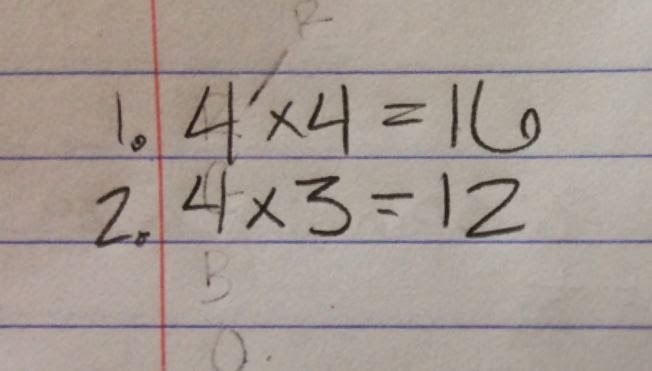 R
1. 4 x 4 = 16
2. 4 x 3 = 12
B
O.